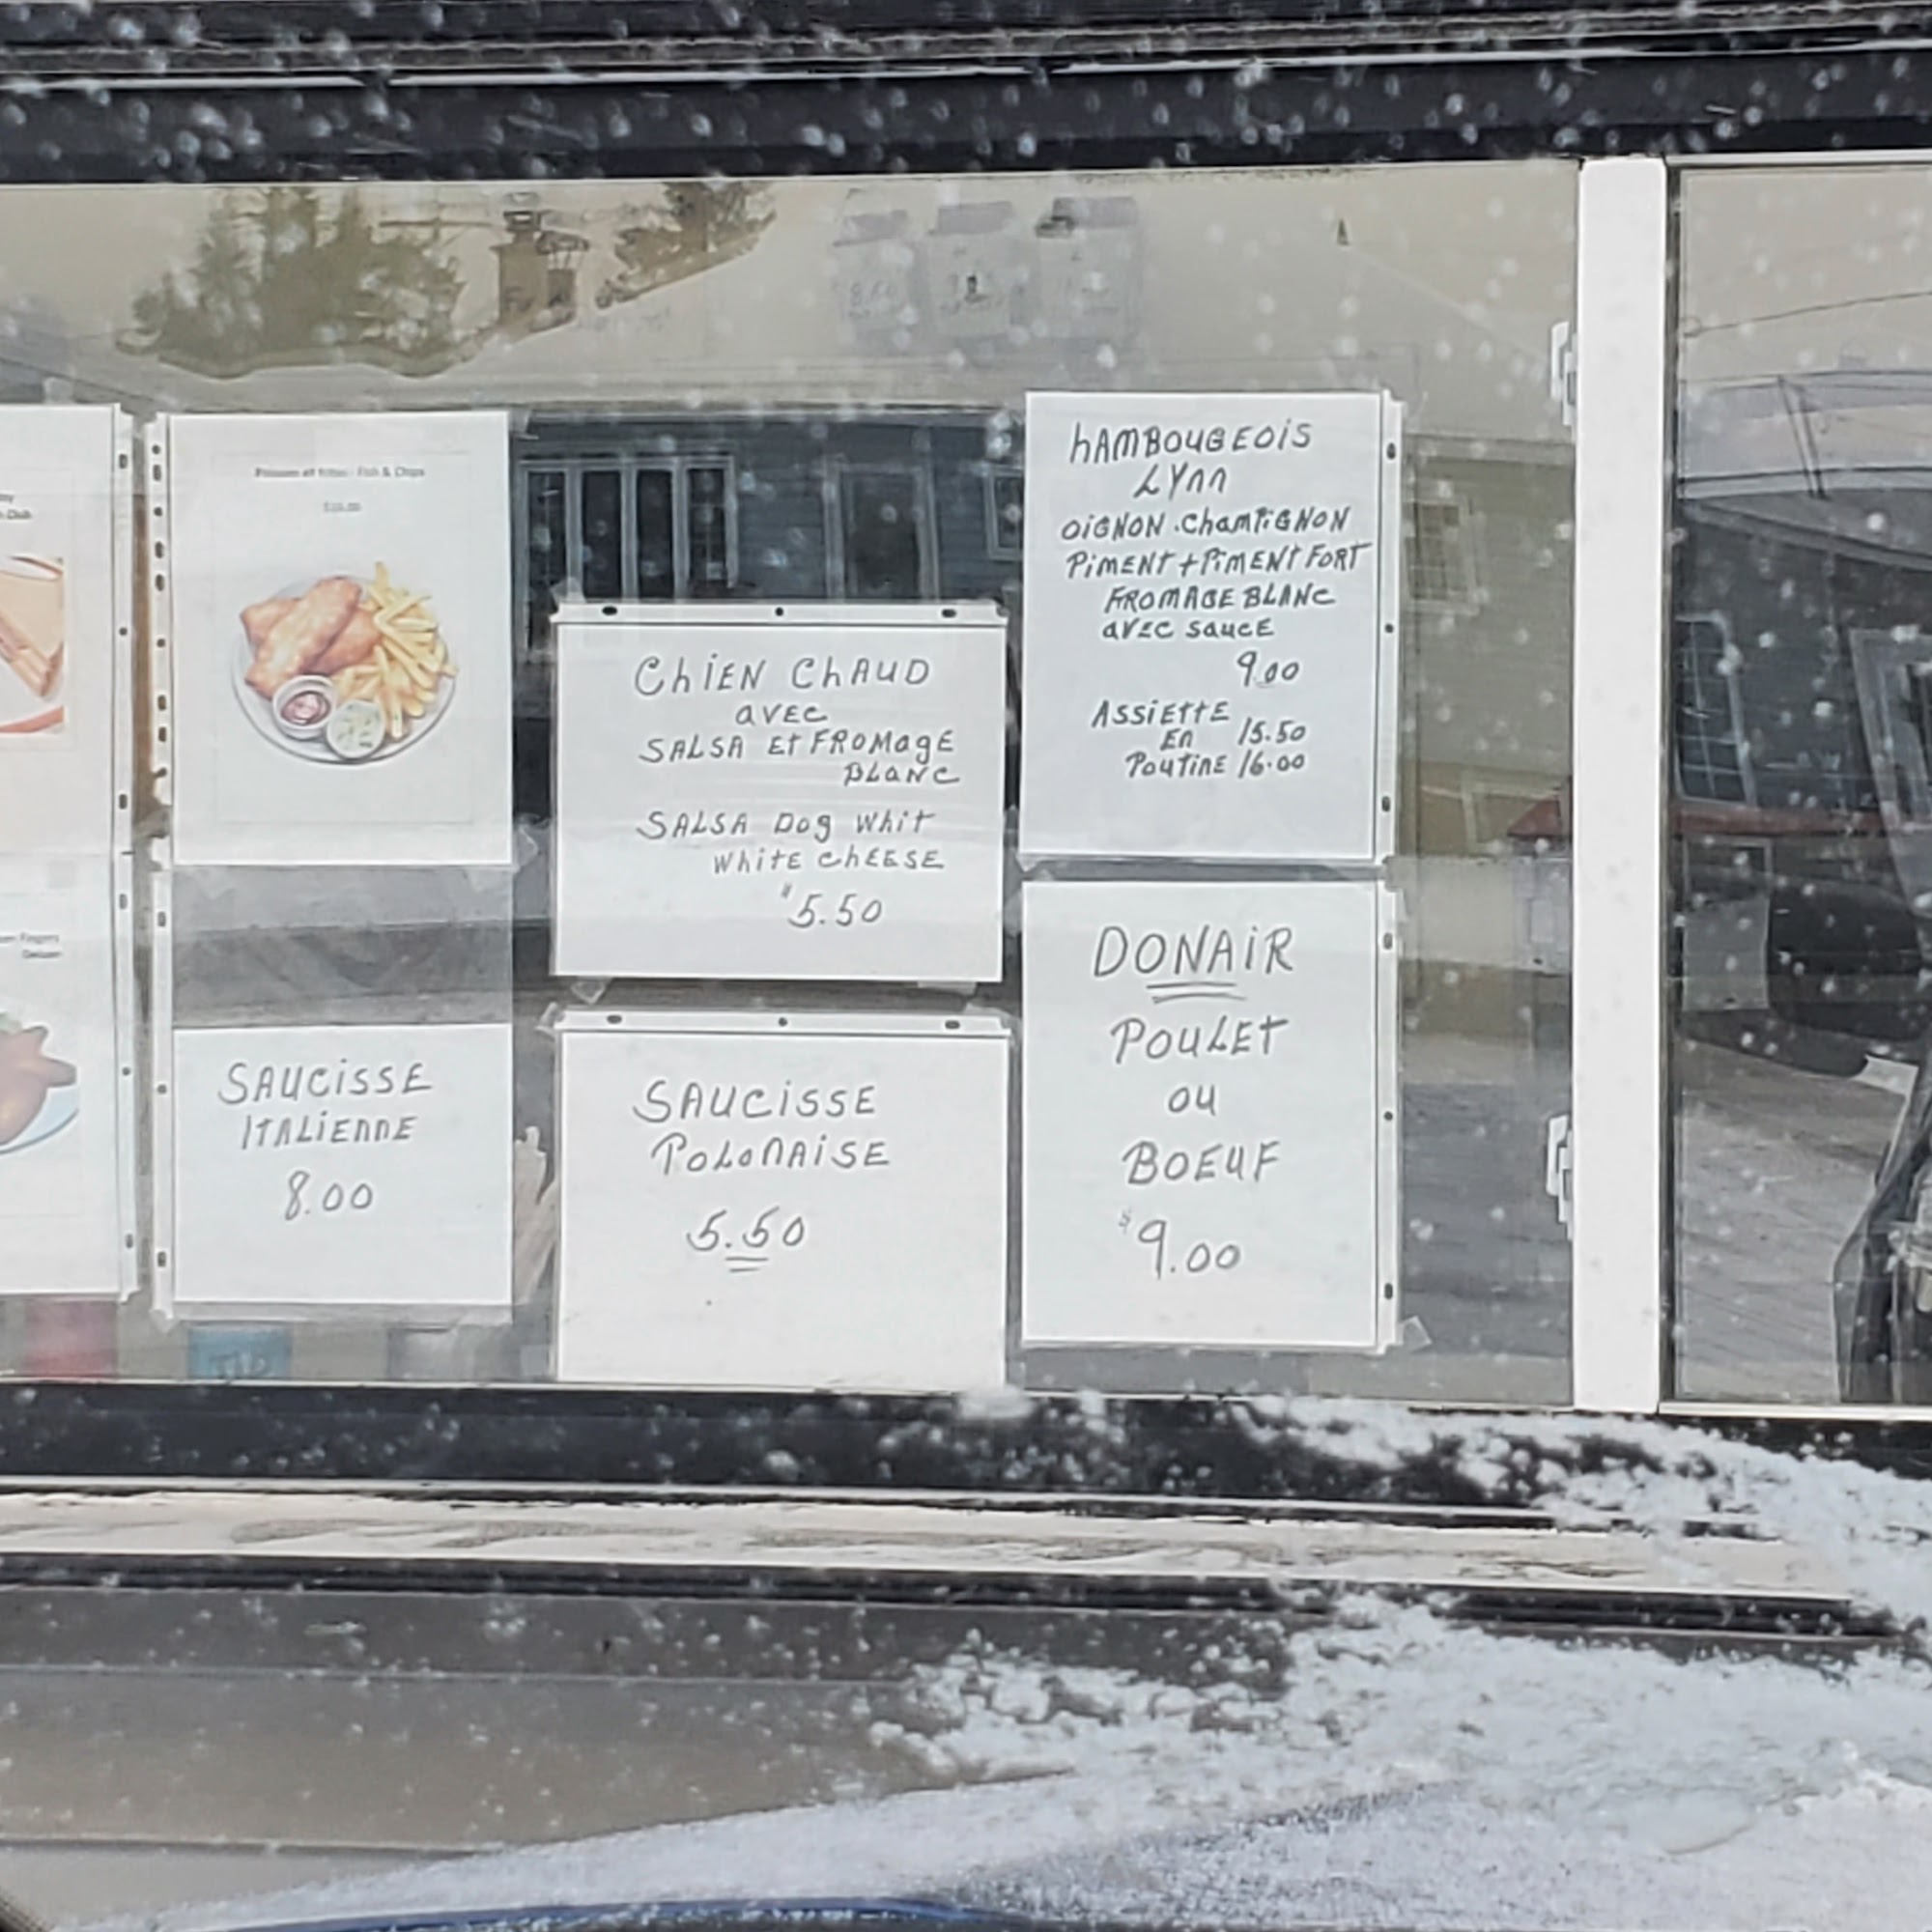 Poisson et frites - Fish & Chips
Club
Fingers
SAUCISSE
ITALIENNE
8.00
CHIEN CHAUD
AVEC
SALSA Et FROMAGE
BLANC
SALSA DOg Whit
WhitE ChEESE
$5.50
SAUCISSE
POLONAISE
5.50
hAMBOUGEOIS
LYNN
OIGNON. ChAMPIGNON
PIMENT + PIMENT FORT
FROMAGE BLANC
AVEC SAUCE
9.00
ASSIETTE
EN 15.50
POUTINE 16.00
DONAIR
POULET
OU
BOEUF
$9.00